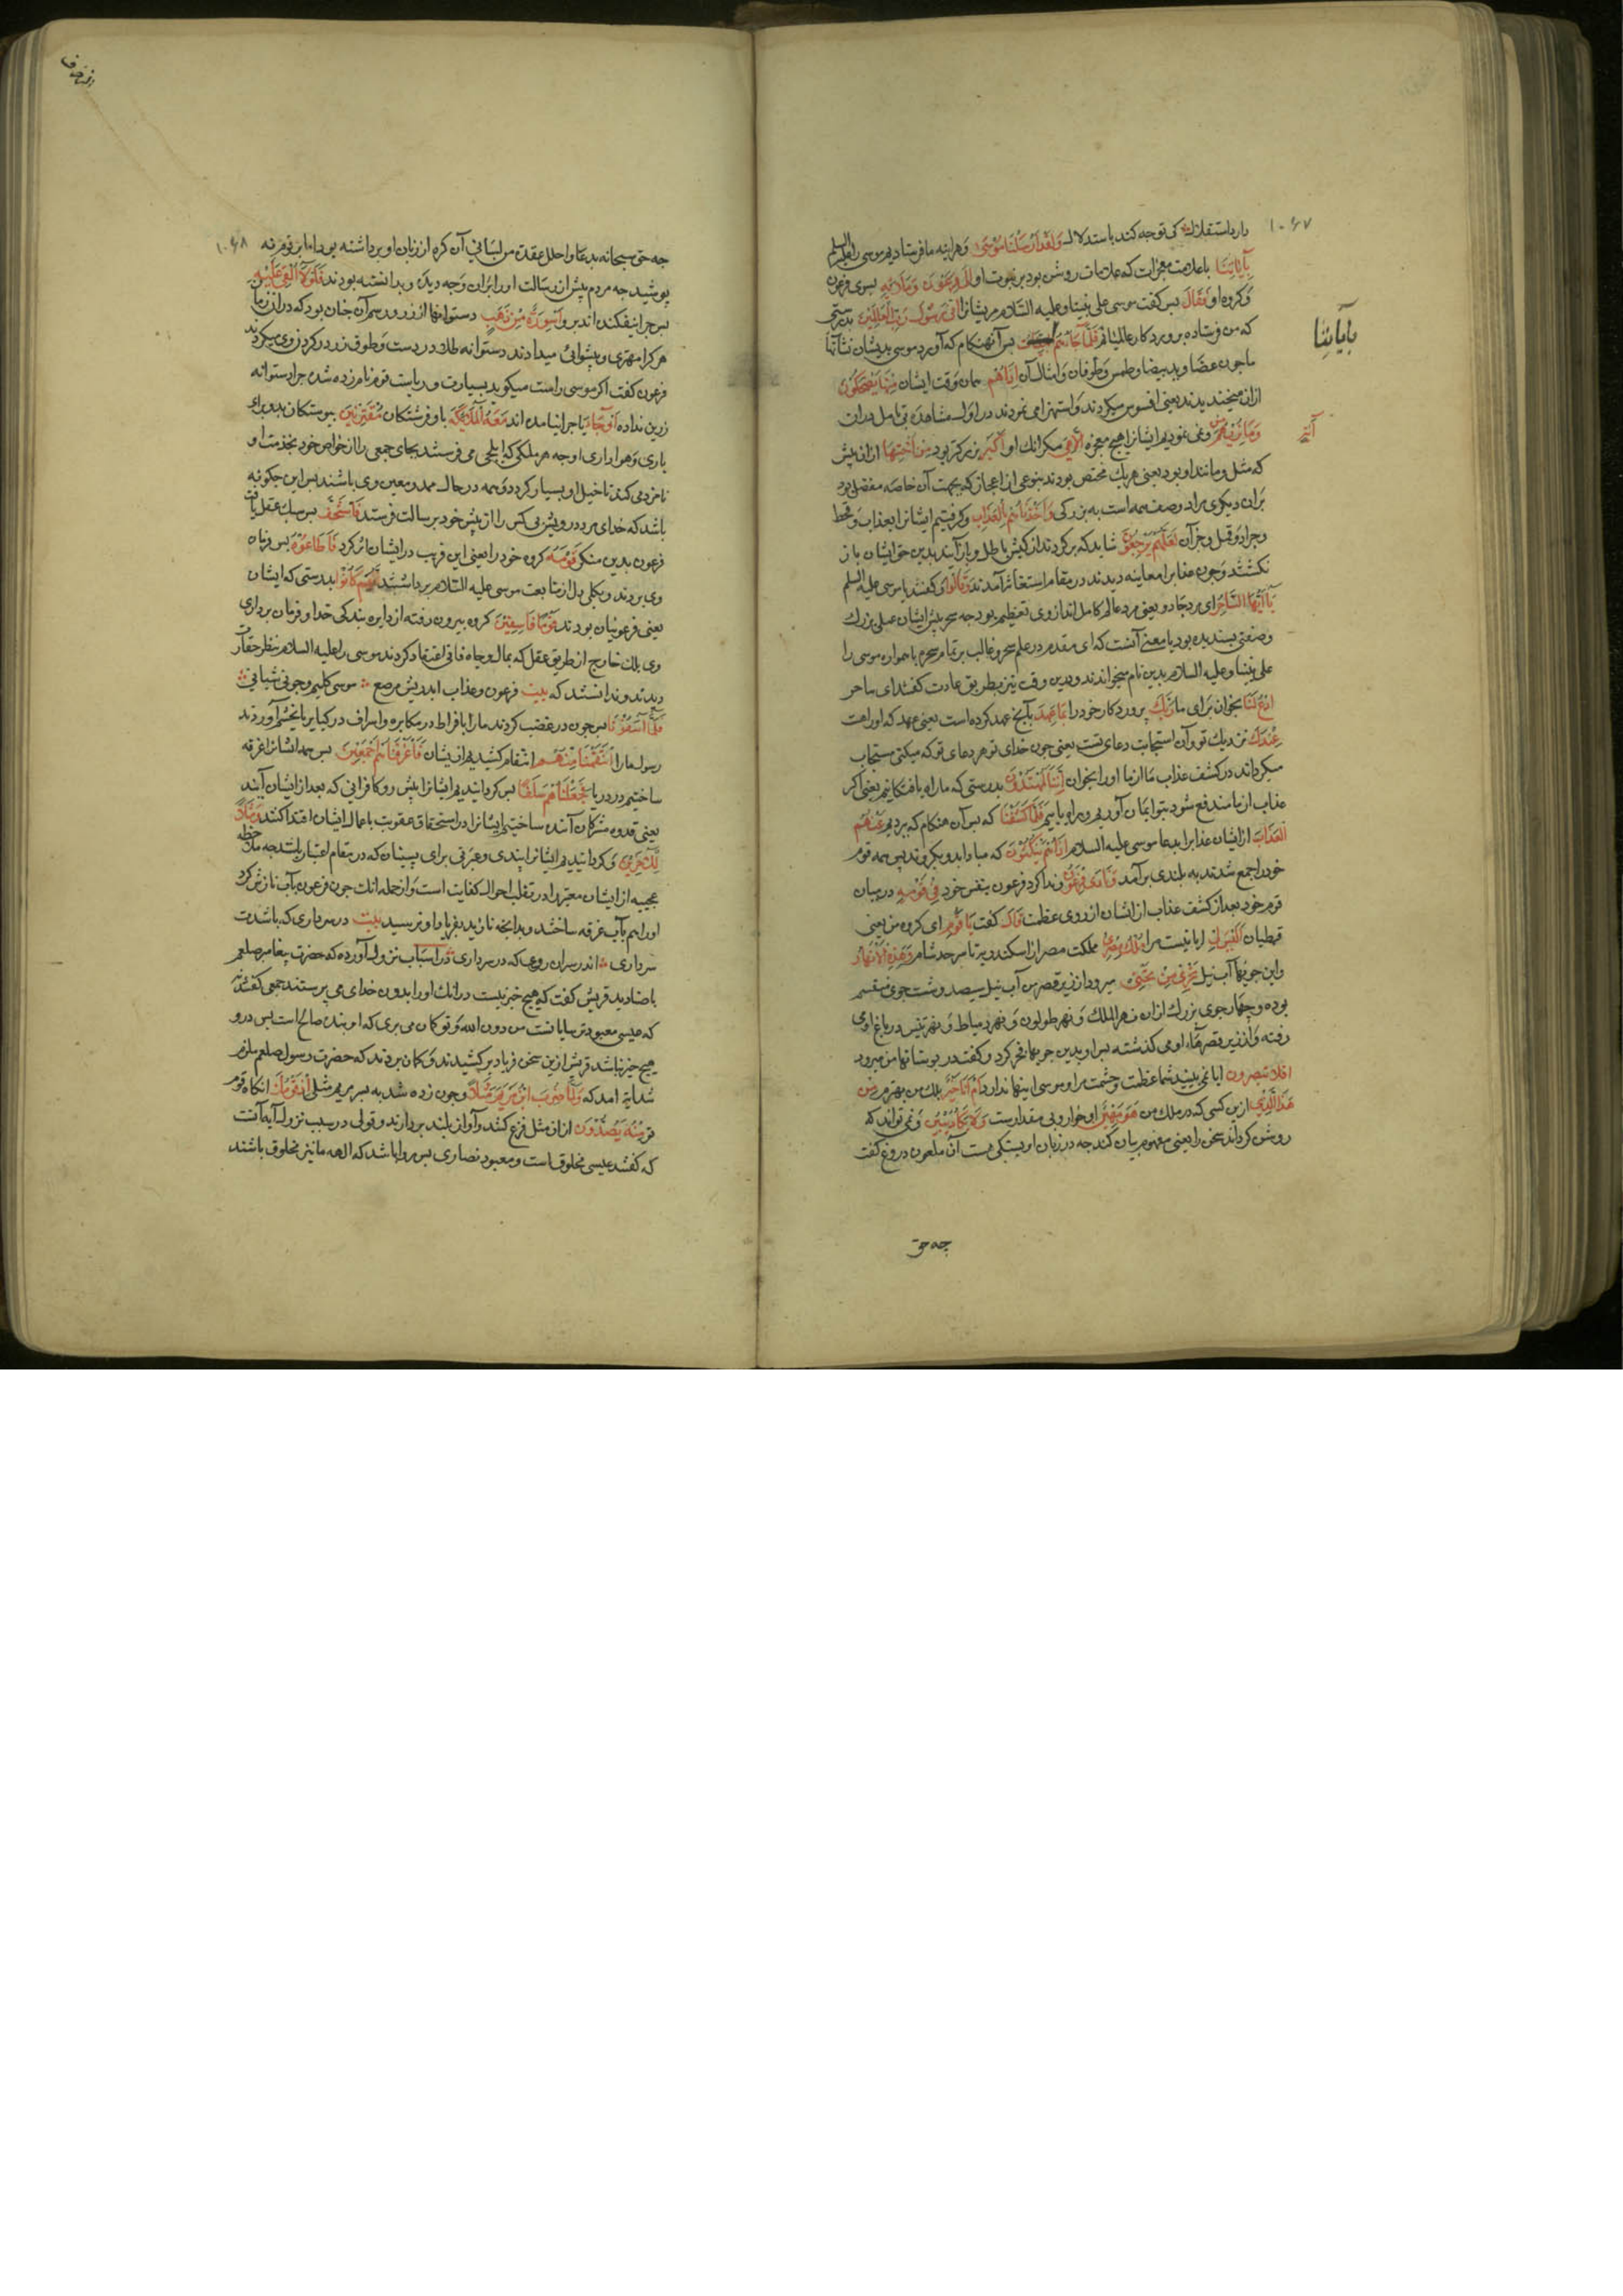 ۱۰۶۷
دارد باستقلال که توجه کند باستدلال وَلَقَدْ اَرْسَلْنَا مُوسٰی وهراینه ما فرستادیم موسی را علیه السلم
بِآیَاتِنَا با علامت معجزات که علامات روشن بود بر نبوت او اِلٰی فِرْعَوْنَ وَمَلَائِهِ بسوی فرعون
وکروه او فَقَالَ بس کفت موسی علی نبینا وعلیه السلام مریشانرا اِنِّی رَسُولُ رَبِّ الْعَالَمِیْنَ بدرستی
که من فرستاده پروردکار عالمیانم فَلَمَّا جَاءَهُمْ بس آنهنکام که آورد موسی بدیشان نشانها
ما چون عصا وید بیضا وطمس وطوفان وامثال آن اِذَاهُمْ همان وقت ایشان مِنْهَا یَضْحَکُوْنَ
ازان میخندیدند یعنی افسوس میکردند واستهزا می نمودند در اول مشاهده بی تامل دران
وَمَا نُرِیْهِمْ مِنْ ونمی نمودیم ایشانرا هیچ معجزه اِلَّا هِیَ مکر انک او اَکْبَرُ بزرکتر بود مِنْ اُخْتِهَا ازان پیش
که مثل ومانند او بود یعنی هریك مختص بودند بنوعی از اعجاز که بجهت آن خاصه مفضل بود
بران دیکری مراد وصف همه است به بزرکی وَاَخَذْنَاهُمْ بِالْعَذَابِ وکرفتیم ایشانرا بعذاب وقحط
وجراد وقمل وجز آن لَعَلَّهُمْ یَرْجِعُوْنَ شاید که برکردند از کیش باطل وباز آیند بدین حق ایشان باز
نکشتند وچون عذابرا معاینه دیدند در مقام استغاثه آمدند وَقَالُوْا وکفتند یا موسی علیه السلم
یَا اَیُّهَا السَّاحِرُ ای مرد جادو یعنی مرد عالم کامل اندازوی تعظیم بود چه سحر پیش ایشان عملی بزرك
وصنعتی پسندیده بود یا معنی آنست که ای مقدم در علم سحر وغالب بر تمام سحره یا همواره موسی را
علی نبینا وعلیه السلام بدین نام میخواندند ودرین وقت نیز بطریق عادت کفتند ای ساحر
ادْعُ لَنَا بخوان برای ما رَبَّكَ پروردکار خود را بِمَا عَهِدَ بآنچ عهد کرده است یعنی عهد که اوراست
عِنْدَكَ نزدیك تو وآن استجابت دعای تست یعنی چون خدای تو هر دعای تو که میکنی مستجاب
میکرداند در کشف عذاب ما از ما اورا بخوان اِنَّنَا لَمُهْتَدُوْنَ بدرستی که ما راه یافتکانیم یعنی اکر
عذاب از ما مندفع شود بتو ایمان آوریم وبراه یابیم فَلَمَّا کَشَفْنَا که بس آن هنکام که بردیم عَنْهُمُ
الْعَذَابَ از ایشان عذابرا بدعا موسی علیه السلام اِذَاهُمْ یَنْکُثُوْنَ که مبادا بدو بکروند پس همه قوم
خودرا جمع شدند به بلندی برآمد وَنَادٰی فِرْعَوْنُ وندا کرد فرعون بنفس خود فِیْ قَوْمِهٖ درمیان
قوم خود بعد از کشف عذاب از ایشان از روی عظمت قَالَ کفت یَا قَوْمِ ای کروه من یعنی
قبطیان اَلَیْسَ لِیْ ایا نیست مرا مُلْكُ مِصْرَ مملکت مصر از اسکندریه تا سرحد شام وَهٰذِهِ الْاَنْهَارُ
واین جویها آب نیل تَجْرِیْ مِنْ تَحْتِیْ میرود از زیر قصر من آب نیل سیصد وشست جوی منقسم
بوده وچهار جوی بزرك ازان نهر الملك ونهر طولون ونهر دمیاط ونهر تنیس در باغ او می
رفته واز زیر قصرهاء او می کذشته بس او بدین جویها فخر کرد وکفت در بوستانها من میرود
افلا تبصرون ایا نمی بینید شما عظمت وحشمت مرا وموسی اینها ندارد اَمْ اَنَا خَیْرٌ بلك من بهترم مِنْ
هٰذَا الَّذِیْ ازین کسی که در ملك من هُوَ مَهِیْنٌ او خوار وبی مقدارست وَلَا یَکَادُ یُبِیْنُ ونمی تواند که
روشن کرداند سخن را یعنی مفهوم بیان کند چه در زبان او بستکی هست آن ملعون دروغ کفت
بِآیَاتِنَا
آیَةٍ
چه حق
۱۰۶۸
چه حق سبحانه بدعا واحلل عقدة من لسانی آن کره از زبان او برداشته بود اما بر قوم نه
پوشید چه مردم پیش از رسالت اورا بران وجه دیده وبدانسته بودند فَلَوْلَا اُلْقِیَ عَلَیْهِ
بس چرا نیفکنده اند برو اَسْوِرَةٌ مِنْ ذَهَبٍ دستوانها از زر ورسم آن چنان بود که دران زمان
هرکرا مهتری وپیشوائی میدادند دستوانه طلا در دست وطوق زر در کردن وی میکردند
فرعون کفت اکر موسی راست میکوید بسیادت وریاست قوم نامزد شده چرا دستوانه
زرین نداده اَوْ جَاءَ یا چرا نیامده اند مَعَهُ الْمَلٰئِکَةُ با او فرشتکان مُقْتَرِنِیْنَ پیوستکان بدو برای
یاری وهواداری او چه هر ملکی که ایلچی می فرستد بجای جمعی را از خواص خود بخدمت او
نامزد می کند تا خیل او بسیار کردد وهمه در حال ممد ومعین وی باشند بس این چکونه
باشد که خدای مرد درویش بی کس را از پیش خود برسالت فرستد فَاسْتَخَفَّ بس سبك عقل یافت
فرعون بدین مکر قَوْمَهٗ کروه خود را یعنی این فریب در ایشان اثر کرد فَاَطَاعُوْهُ بس فرمان
وی بردند وبکلی دل از متابعت موسی علیه السلام برداشتند اِنَّهُمْ کَانُوْا بدرستی که ایشان
یعنی فرعونیان بودند قَوْمًا فَاسِقِیْنَ کروه بیرون رفته از دایره بندکی خدا وفرمان برداری
وی بلك خارج از طریق عقل که بمال وجاه فانی اعتقاد کردند موسی را علیه السلام بنظر حقارت
دیدند وندانستند که بیت فرعون وعذاب ابد وریش مرصع موسی کلیم وچوبی شبانی
فَلَمَّا آسَفُوْنَا بس چون در غضب کردند مارا بافراط در مکابره واسراف در کبایر یا بخشم آوردند
رسول مارا اِنْتَقَمْنَا مِنْهُمْ انتقام کشیدیم از یشان فَاَغْرَقْنَاهُمْ اَجْمَعِیْنَ بس همه ایشانرا غرقه
ساختیم در دریا فَجَعَلْنَاهُمْ سَلَفًا بس کردانیدیم ایشانرا پیش رو کافرانی که بعد از ایشان آیند
یعنی قدوه مشرکان آینده ساختیم ایشانرا در استحقاق عقوبت با عمال ایشان اقتدا کنند وَمَثَلًا
لِلْاٰخِرِیْنَ وکردانیدیم ایشانرا پندی وعبرتی برای پسینان که در مقام اعتبار باشند چه ملاحظه
عجیبه از ایشان معتبر را در تقلب احوال کفایت است واز جمله انك چون فرعون بآب نازش کرد
اورا هم بآب غرقه ساختند وبدانچه نازید بفریاد او نرسید بیت در سر داری که باشدت
سرداری اندر سران روی که در سرداری در اسباب نزول آورده که حضرت پیغامبر صلعم
با صنادید قریش کفت که هیچ خیر نیست در انك اورا بدون خدای می پرستند جمعی کفتند
که عیسی معبود ترسایانست من دون الله وتو کمان می بری که او بنده صالح است بس درو
هیچ خیر نباشد قریش ازین سخن فریاد برکشیدند وکمان بردند که حضرت رسول صلعم ملزم
شد آیة امد که وَلَمَّا ضُرِبَ ابْنُ مَرْیَمَ مَثَلًا وچون زده شد به پسر مریم مثلی اِذَا قَوْمُكَ انکاه قوم
تو مِنْهُ یَصِدُّوْنَ ازان مثل فزع کنند وآواز بلند بردارند وقولی در سبب نزول آیه آنست
که کفتند عیسی مخلوق است ومعبود نصاری بس روا باشد که الهه ما نیز مخلوق باشند